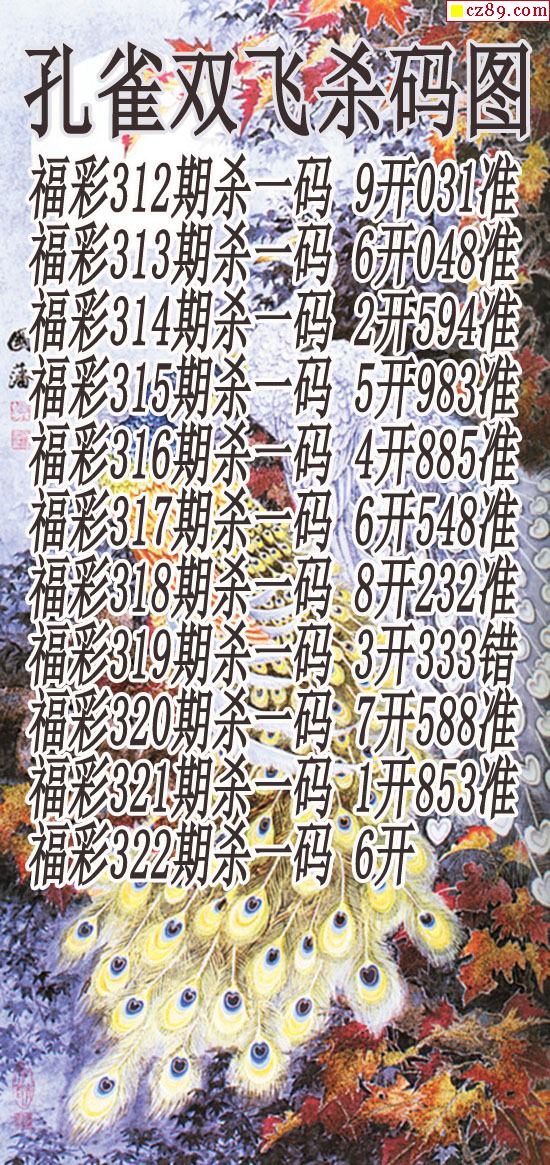 cz89.com
孔雀双飞杀码图
福彩312期杀一码 9开031准
福彩313期杀一码 6开048准
福彩314期杀一码 2开594准
福彩315期杀一码 5开983准
福彩316期杀一码 4开885准
福彩317期杀一码 6开548准
福彩318期杀一码 8开232准
福彩319期杀一码 3开333错
福彩320期杀一码 7开588准
福彩321期杀一码 1开853准
福彩322期杀一码 6开